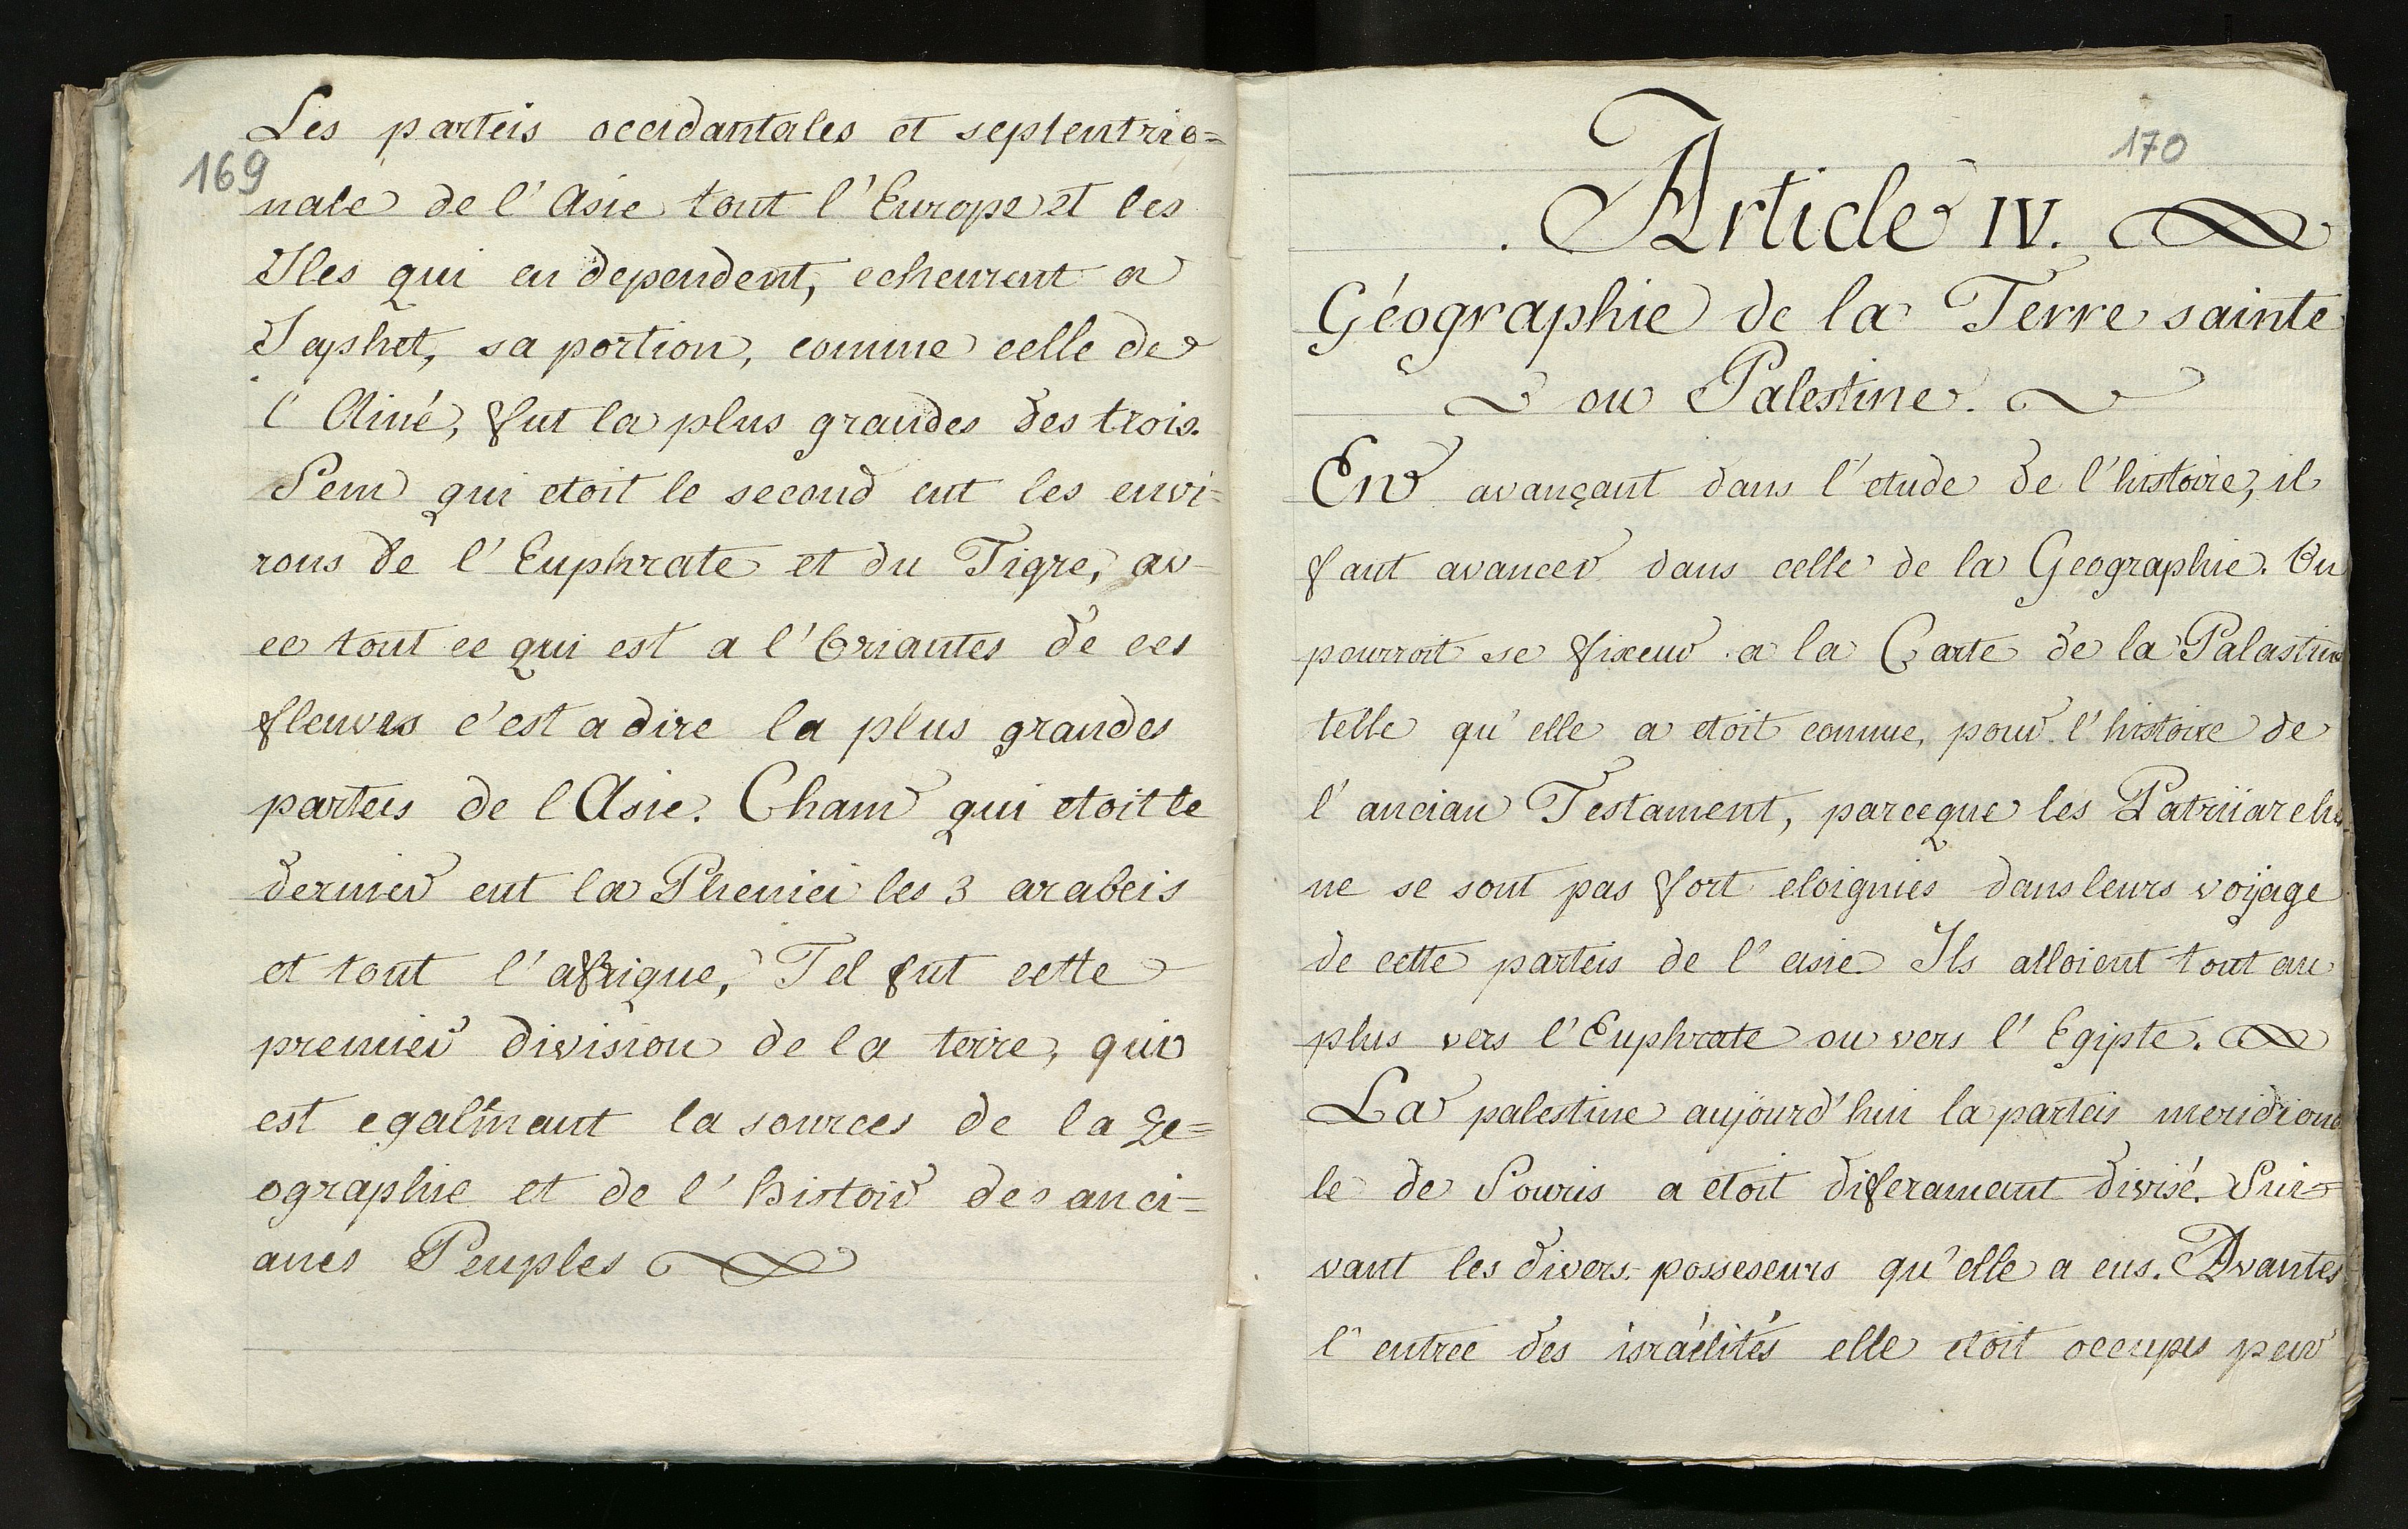 169
Les parteis occidantales et septentrio=
nale de l'Asie tout l'Europe et les
Iles qui en dependent, echeurent a
Japhet, sa portion, comme celle de
l'Ainé, fut la plus grandes des trois.
Sem qui etoit le second eut les envi=
rons de l'Euphrate et du Tigre, av-
ec tout ce qui est a l'Oriantes de ces
fleuves c'est a dire la plus grandes
parteis de l'Asie. Cham qui etoit le
dernier eut la Phenici les 3 arabeis
et tout l'afrique, Tel fut cette
premier division de la terre, qui
est egalmant la sources de la Ge=
ographie et de l'histoir des anci=
anes Peuples
170
Article IV.
Géographie de la Terre sainte
ou Palestine.
En avançant dans l'etude de l'histoire, il
faut avancer dans celle de la Geographie. On
pourroit se fixeur a la Carte de la Palastine
telle qu'elle a etoit connue, pour l'histoire de
l'ancian Testament, parceque les Patriiarches
ne se sont pas fort eloignies dans leurs voÿage
de cette parteis de l'asie Ils alloient tout au
plus vers l'Euphrate ou vers l'Egipte.
La palestine aujourd'hui la parteis meridiona
le de Souris a etoit diferamant divisé. Sui-
vant les divers posseseurs qu'elle a eus. Avantes
l'entree des israélités elle etoit occupes peur